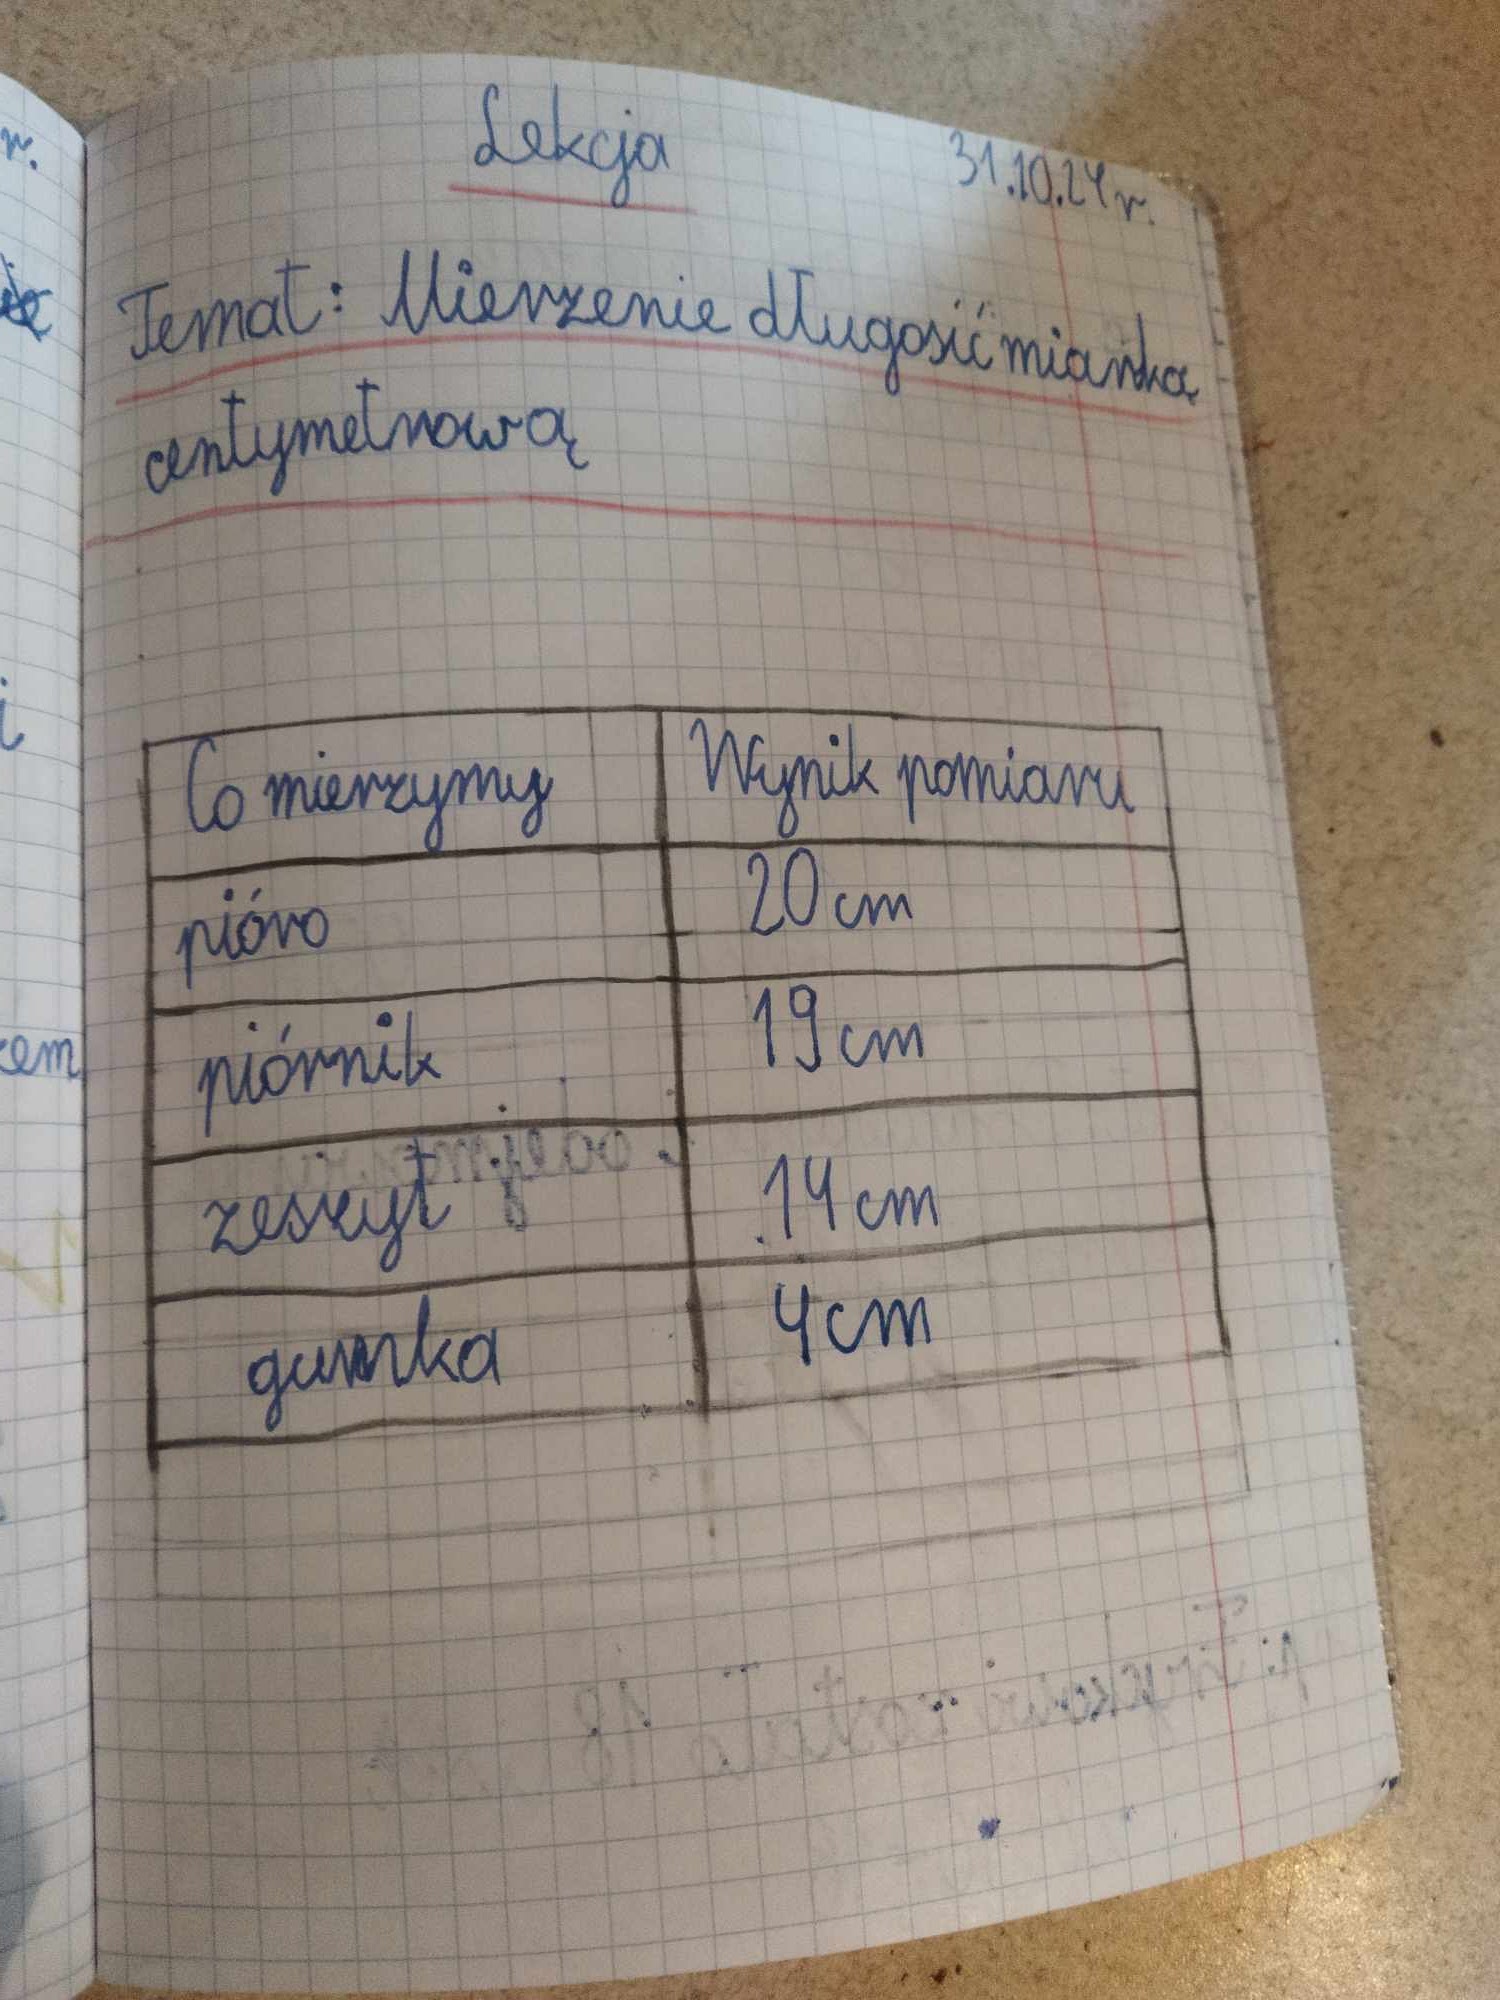 Lekcja 31.10.24 r.
Temat: Mierzenie długośić miarką
centymetrową
Co mierzymy Wynik pomiaru
pióro 20 cm
piórnik 19 cm
zeszyt 14 cm
gumka 4 cm